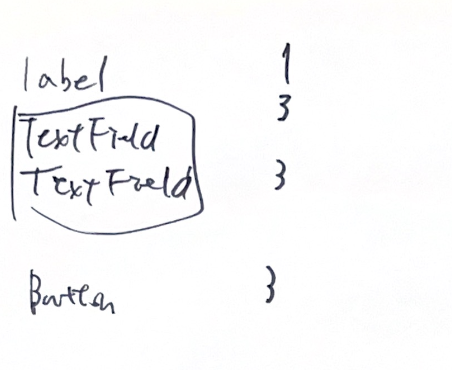 label 1
TextField 3
TextField 3
Button 3